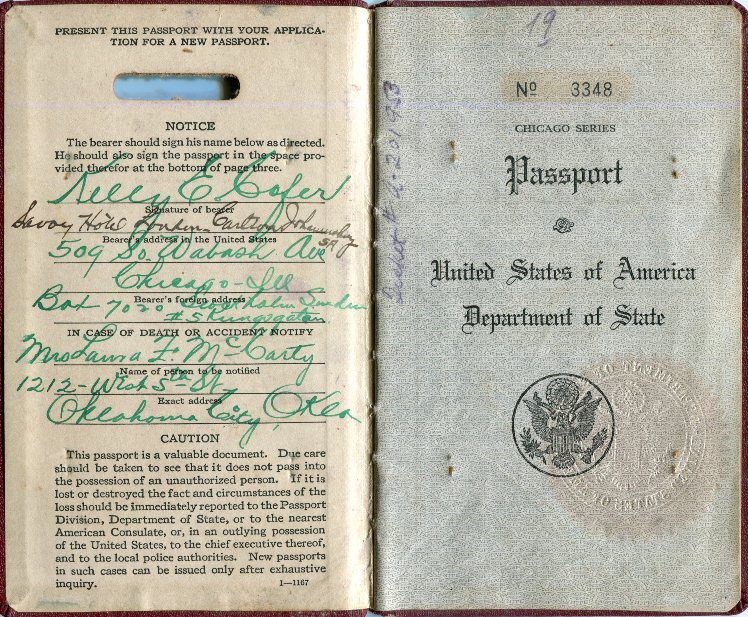 PRESENT THIS PASSPORT WITH YOUR APPLICA-
TION FOR A NEW PASSPORT.
NOTICE
The bearer should sign his name below as directed.
He should also sign the passport in the space pro-
vided therefor at the bottom of page three.
Kelly E. Cofer
Signature of bearer
Savoy Hotel London Carlton Johannesburg
SA
Bearer's address in the United States
509 So. Wabash Ave
Chicago - Ill
Bearer's foreign address
Box - 7020 Stockholm Sweden
# 5 Kungsgatan
IN CASE OF DEATH OR ACCIDENT NOTIFY
Mrs Laura F. McCarty
Name of person to be notified
1212 - West 5th St.
Exact address
Oklahoma City, Okla
CAUTION
This passport is a valuable document. Due care
should be taken to see that it does not pass into
the possession of an unauthorized person. If it is
lost or destroyed the fact and circumstances of the
loss should be immediately reported to the Passport
Division, Department of State, or to the nearest
American Consulate, or, in an outlying possession
of the United States, to the chief executive thereof,
and to the local police authorities. New passports
in such cases can be issued only after exhaustive
inquiry.
1—1167
19
No 3348
CHICAGO SERIES
Passport
United States of America
Department of State